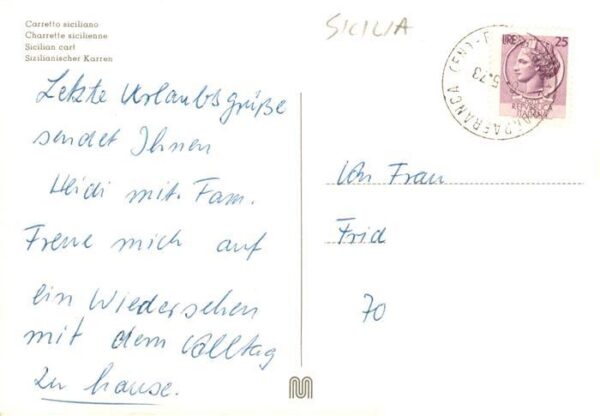 Carretto siciliano
Charrette sicilienne
Sicilian cart
Sizilianischer Karren
SICILIA
LIRE 25
5.73
Letzte Urlaubsgrüße
sendet Ihnen
Heidi mit Fam.
Freue mich auf
ein Wiedersehen
mit dem Alltag
zu hause.
An Frau
Frid
70